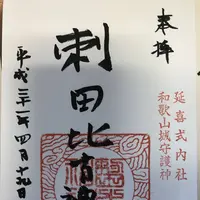 奉拝
延喜式内社
和歌山城守護神
刺田比古神
平成三十一年四月十九日